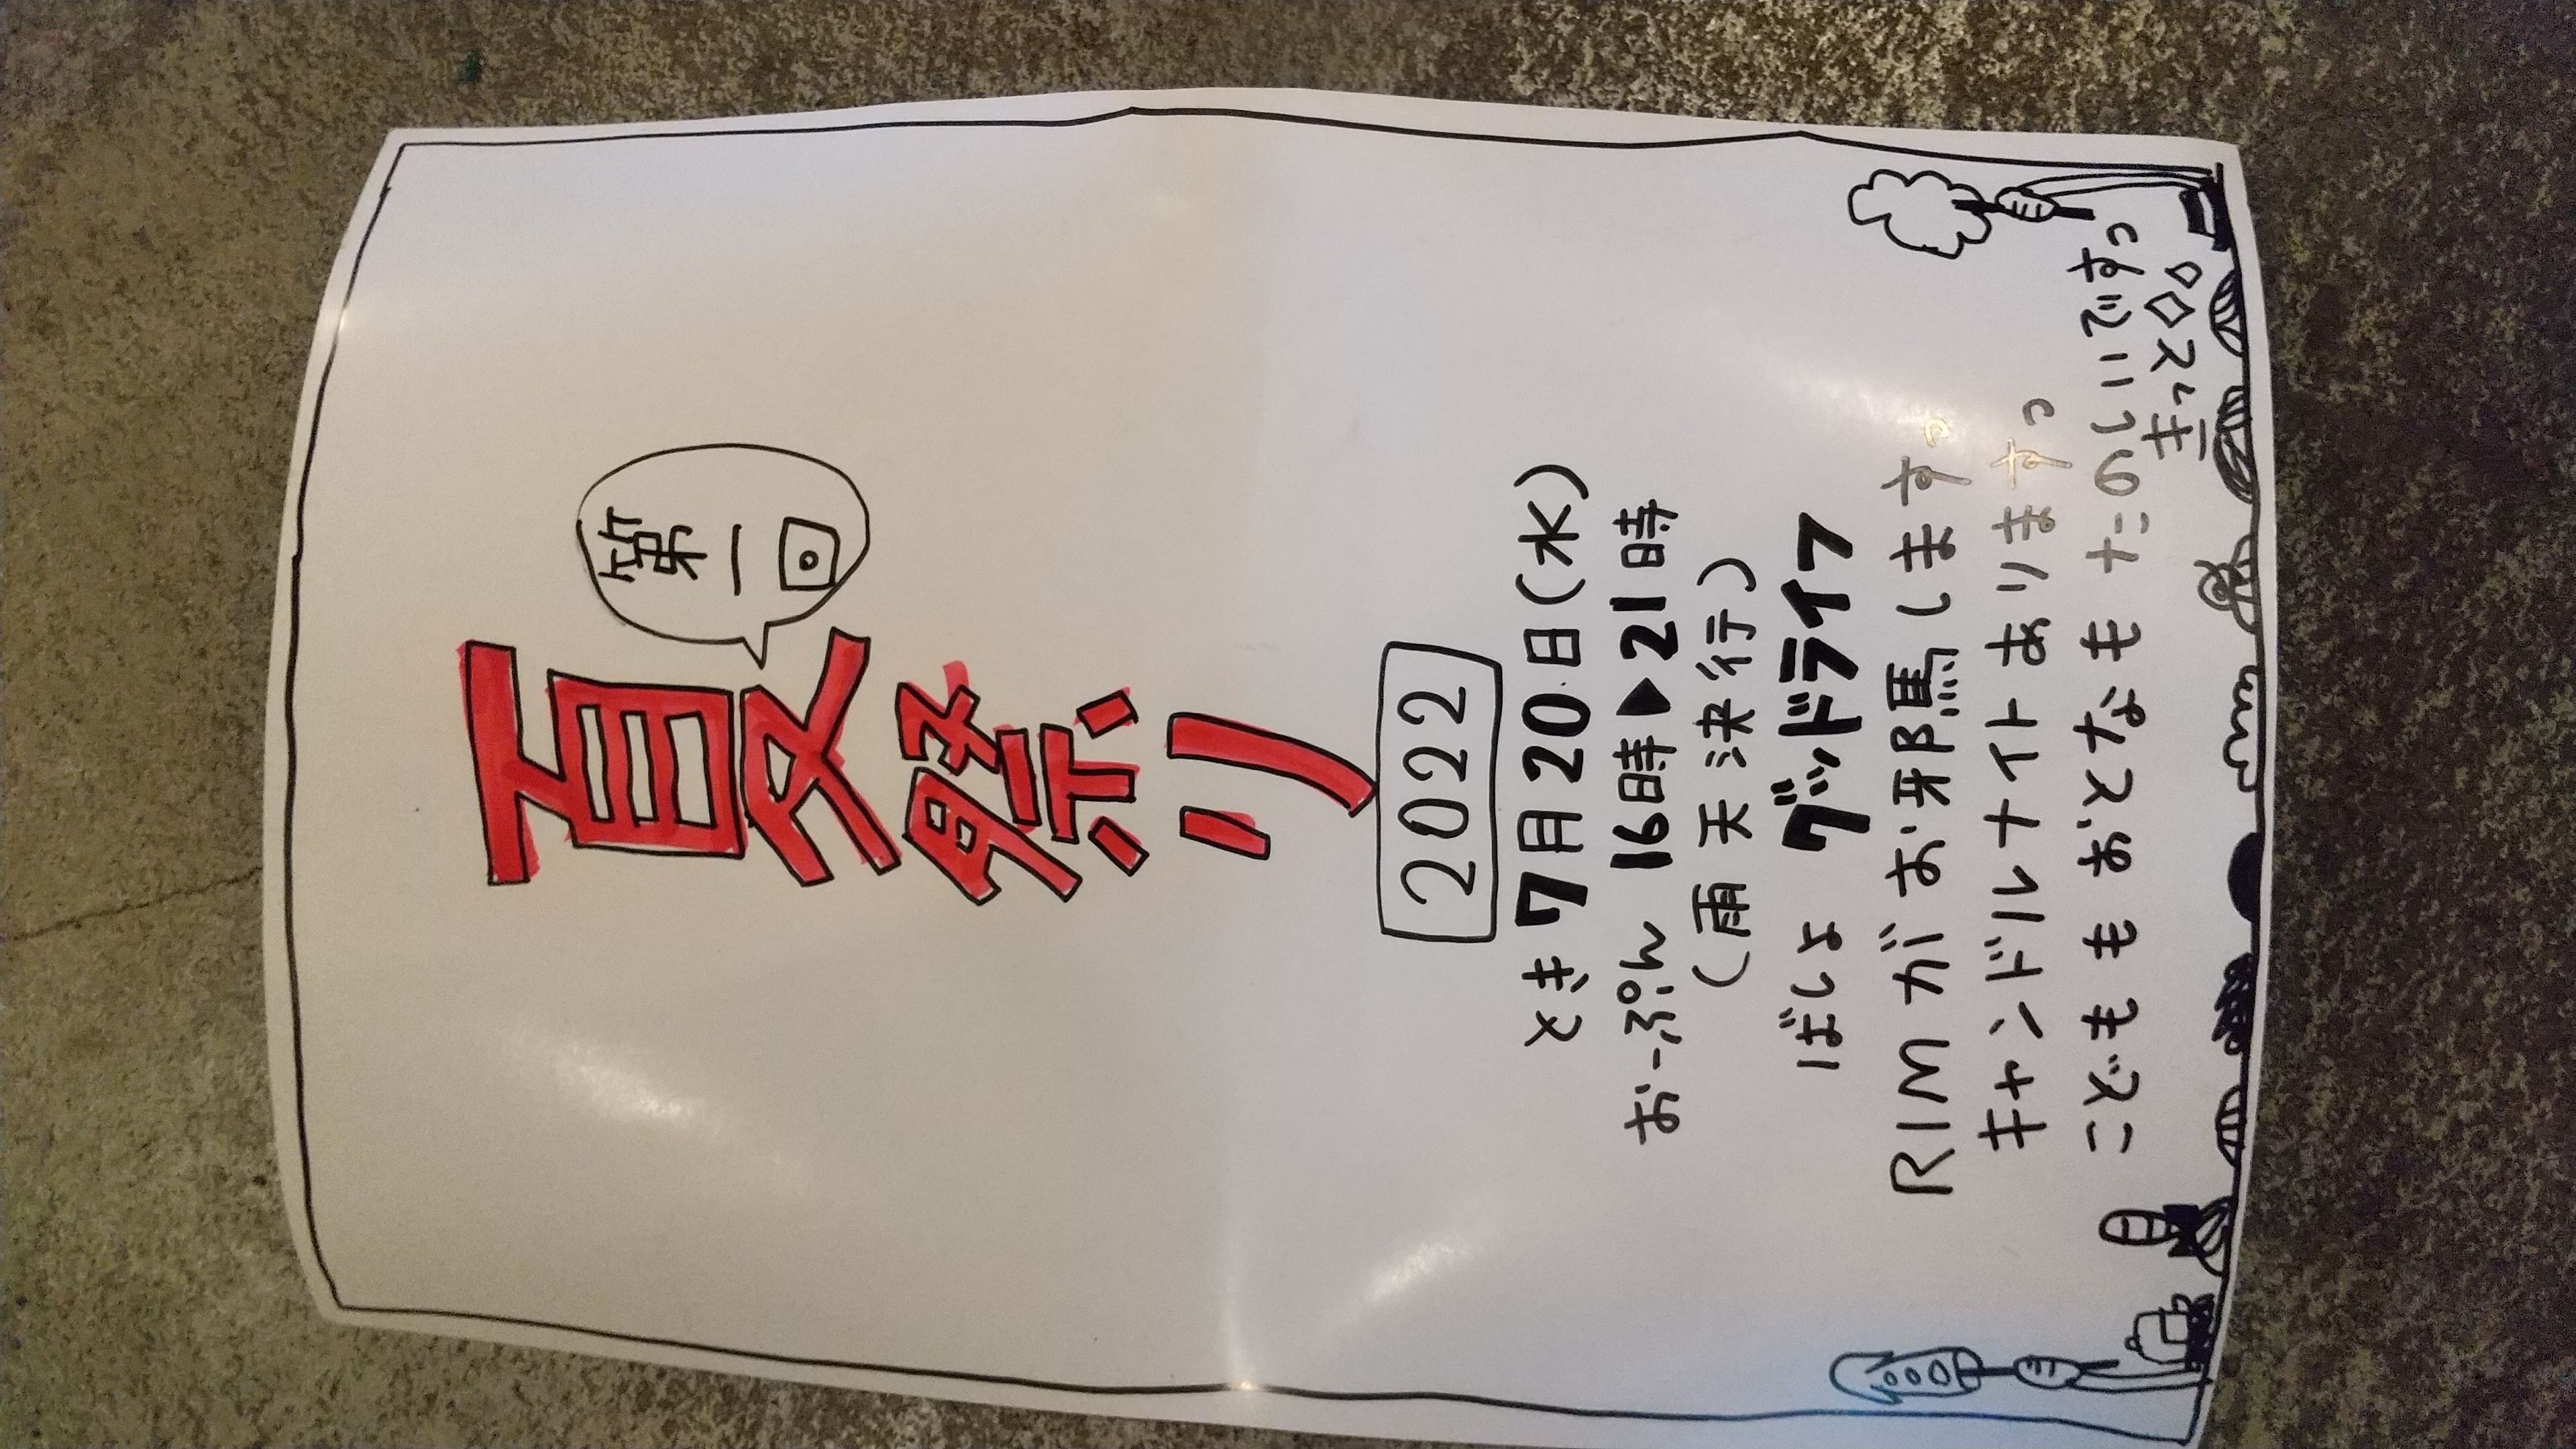 第一回
夏祭り
2022
とき 7月20日(水)
おーぷん 16時▶21時
(雨天決行)
ばしょ グッドライフ
RIMがお邪馬します。
キャンドルナイトあります。
こどももおとなも